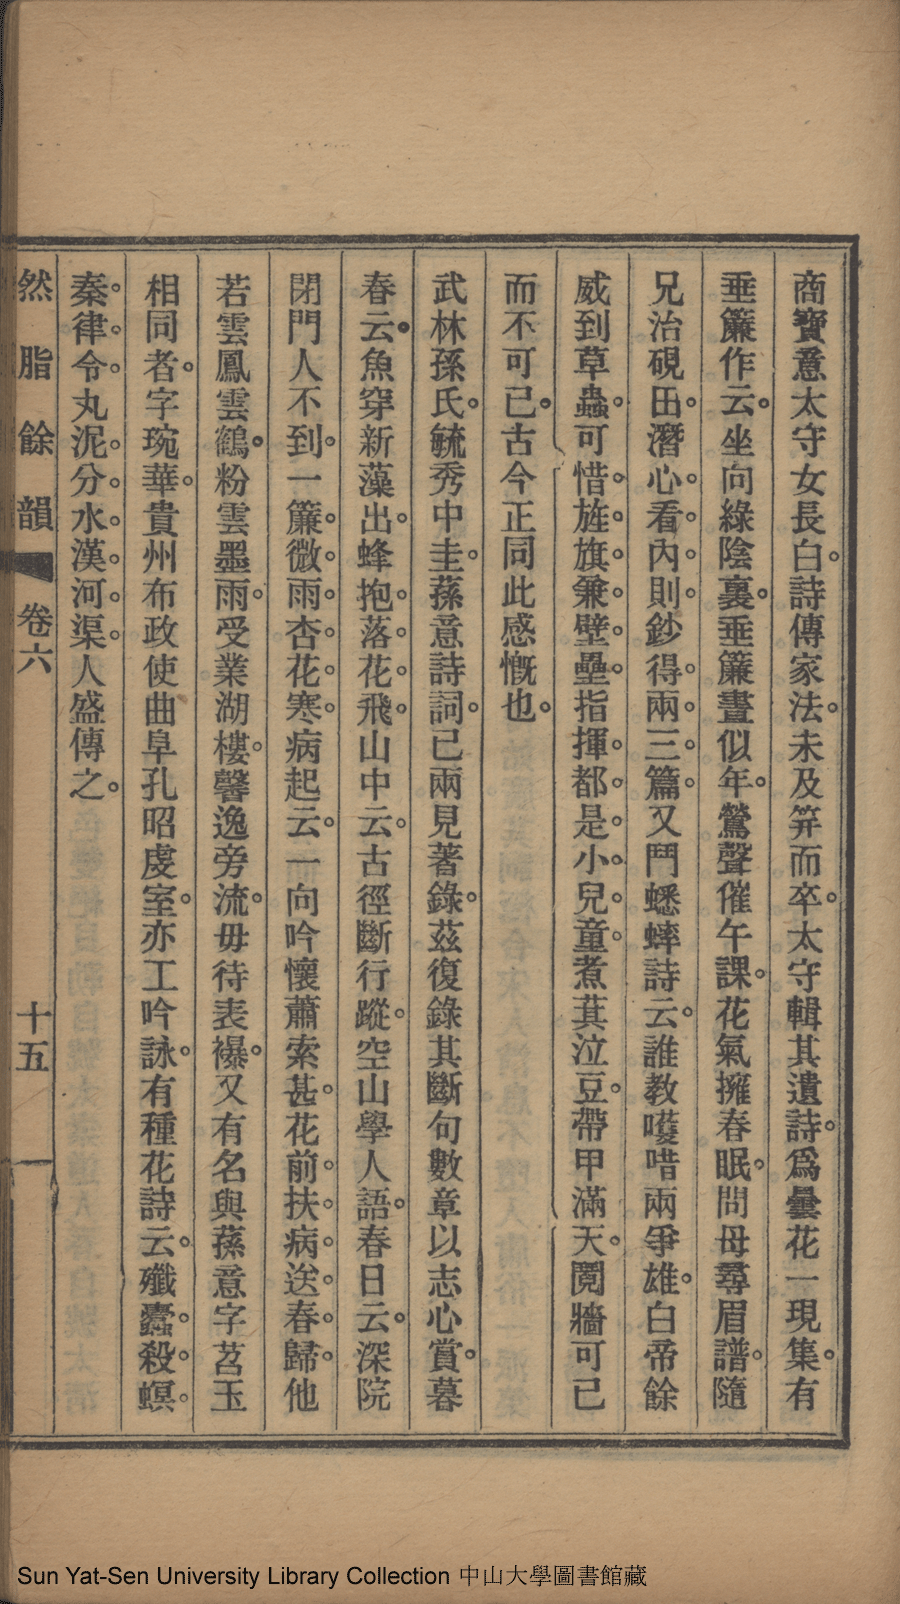 商寶意太守女長白。詩傳家法。未及笄而卒。太守輯其遺詩。爲曇花一現集。有
垂簾作云。坐向綠陰裏。垂簾晝似年。鶯聲催午課。花氣擁春眠。問母尋眉譜。隨
兄治硯田。潛心。看。內。則。鈔得。兩。三。篇。又鬥蟋蟀詩云。誰教嚄唶兩爭雄。白帝餘
威到草蟲。可惜。旌。旗。兼。壁。壘。指揮。都。是。小。兒。童。煮萁泣豆。帶甲滿天。鬩牆可已
而不可已。古今正同此感慨也。
武林孫氏。毓秀中圭。蓀意詩詞。已兩見著錄。茲復錄其斷句數章以志心賞。暮
春云。魚穿新藻出。蜂抱。落。花。飛。山中云。古徑斷行蹤。空山學人語。春日云。深院
閉門人不到。一簾。微。雨。杏。花。寒。病起云。一向吟懷蕭索甚。花前。扶。病。送。春。歸。他
若雲鳳雲鶴。粉雲墨雨。受業湖樓。馨逸旁流。毋待表襮。又有名與蓀意字苕玉
相同者。字琬華。貴州布政使曲阜孔昭虔室。亦工吟詠。有種花詩云。殲蠹。殺。螟。
秦。律。令。丸泥。分。水。漢。河。渠。人盛傳之。
然脂餘韻 卷六 十五
Sun Yat-Sen University Library Collection 中山大學圖書館藏